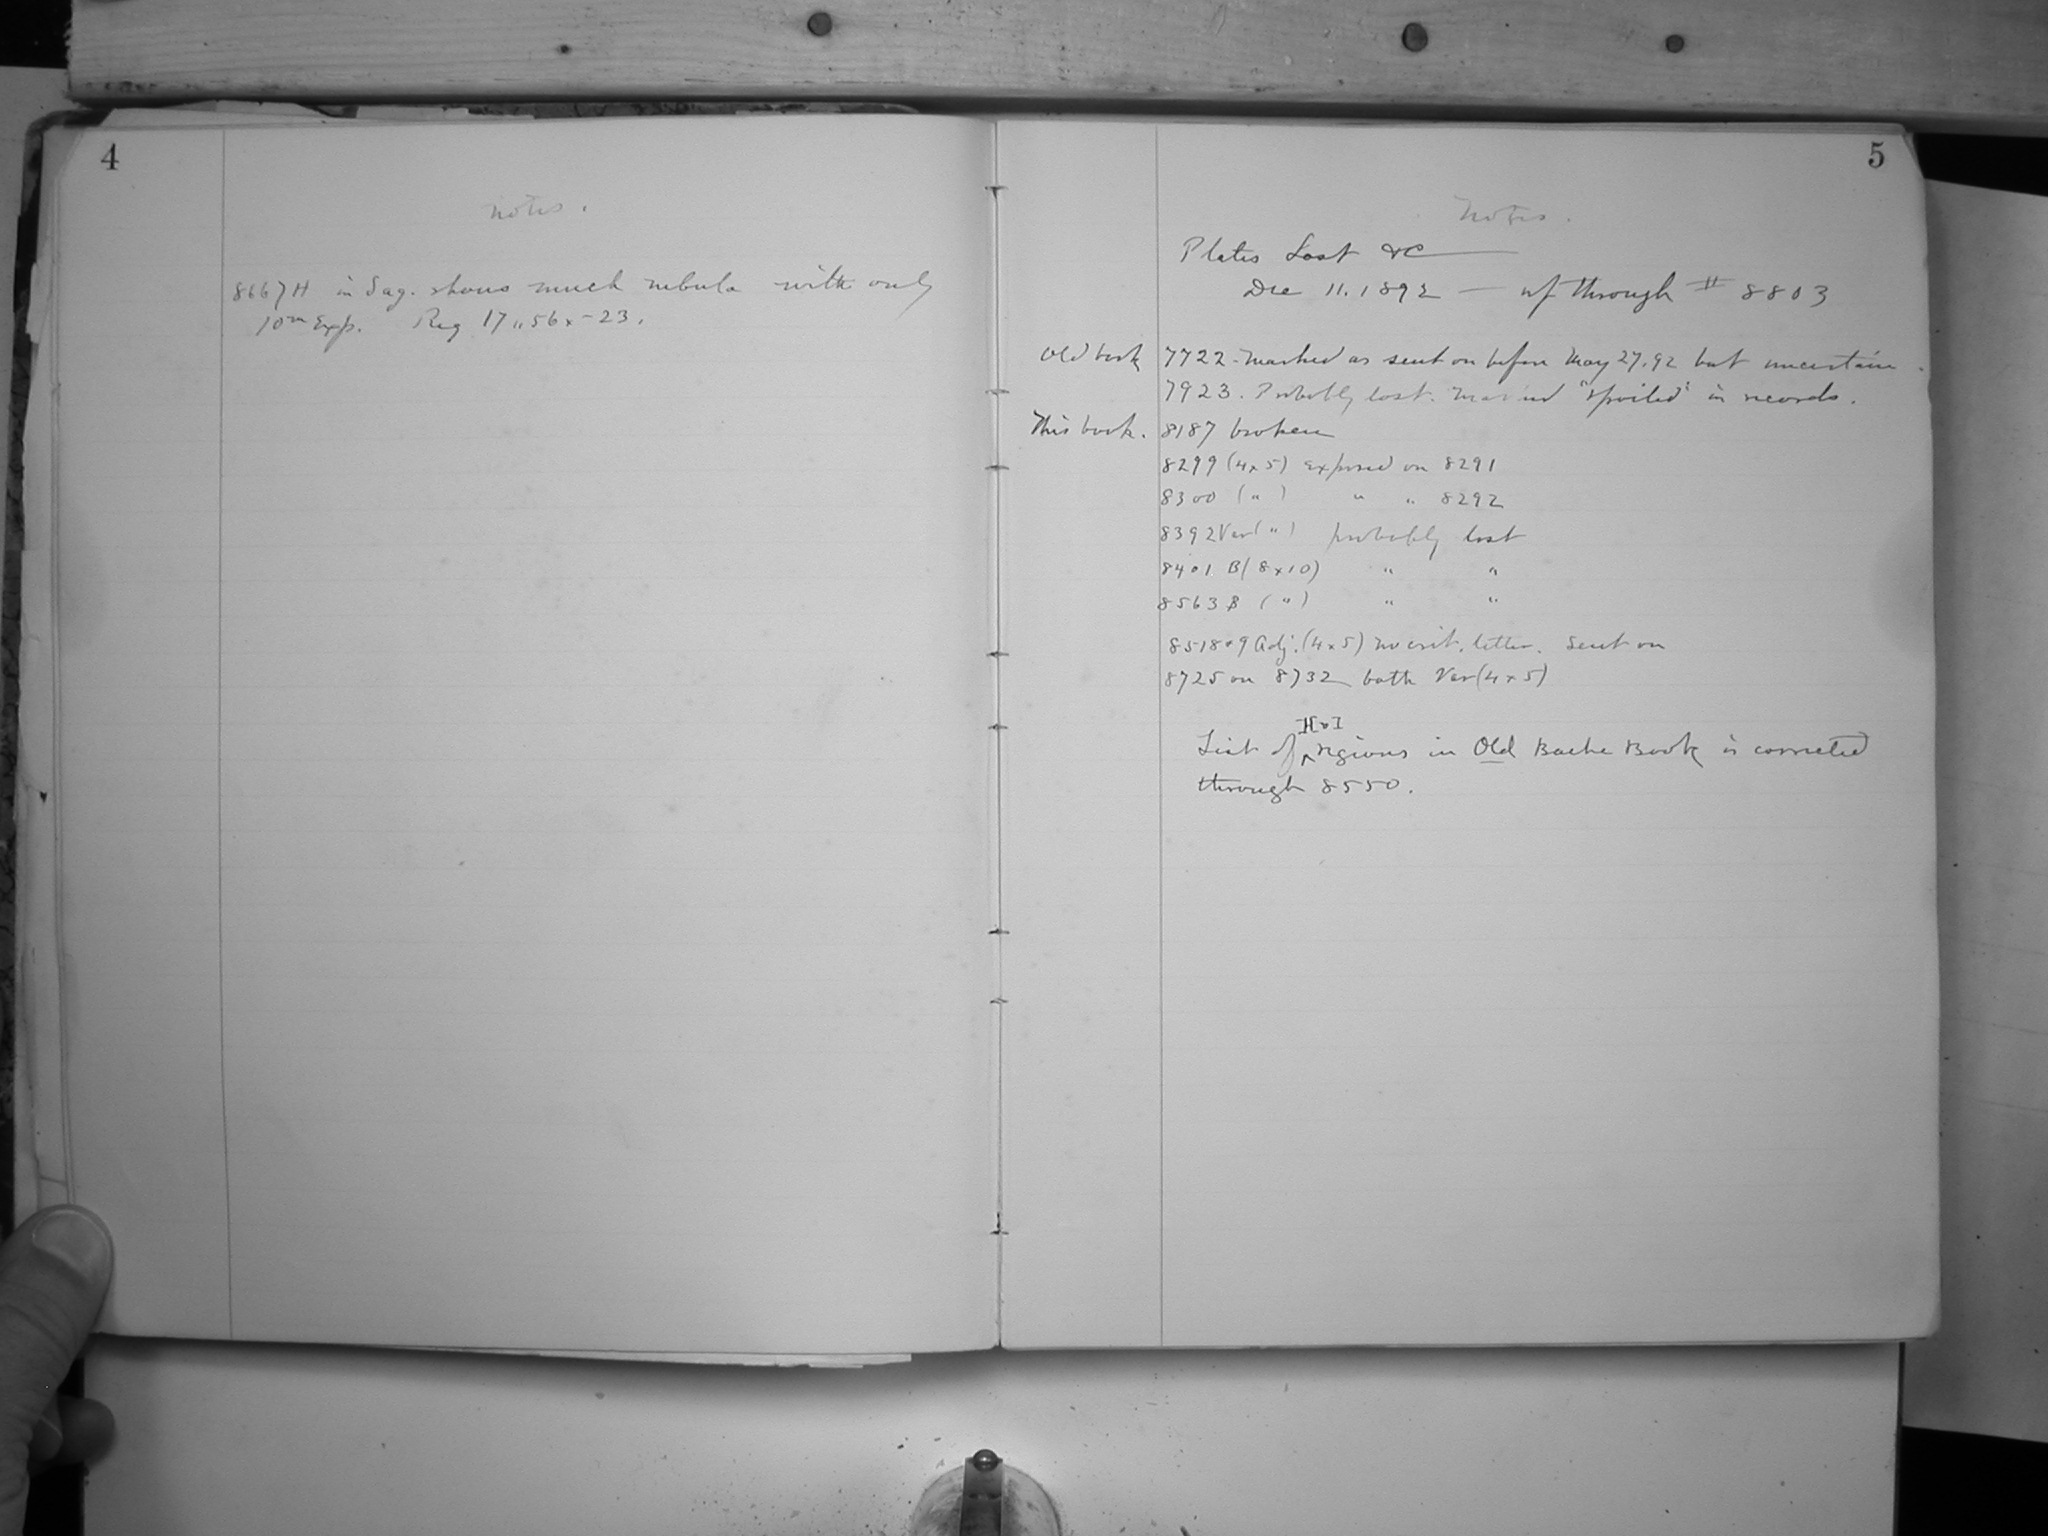 4
Notes.
8667 H in Sag. shows much nebula with only
10m Exp. Reg 17,,56x-23.
5
Notes.
Plates Lost &c
Dec 11. 1892 — up through # 8803
Old book 7722 - Marked as sent on before May 27.92 but uncertain.
7923. Probably lost. Marked "spoiled" in records.
This book. 8187 broken
8299 (4x5) exposed on 8291
8300 ( " ) " " 8292
8392 Var ( " ) probably lost
8401 B (8x10) " "
8563 B ( " ) " "
8518+9 Adj. (4x5) no letter. Sent on
8725 on 8732 both Var (4x5)
List of regions in Old Bache Book is corrected
through 8550.